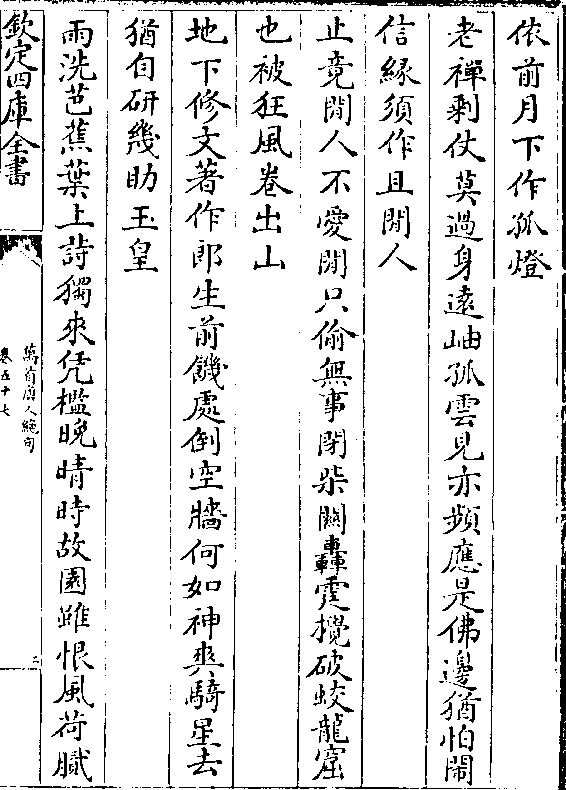 依前月下作孤燈
老禪剩仗莫過身遠岫孤雲見亦頻應是佛邊猶怕鬧
信緣須作且閒人
止竟閒人不愛閒只偷無事閉柴關轟霆攪破蛟龍窟
也被狂風卷出山
地下修文著作郎生前饑處倒空牆何如神爽騎星去
猶自研幾助玉皇
雨洗芭蕉葉上詩獨來凭檻晚晴時故園雖恨風荷膩
欽定四庫全書
萬首唐人絕句
卷五十七
三